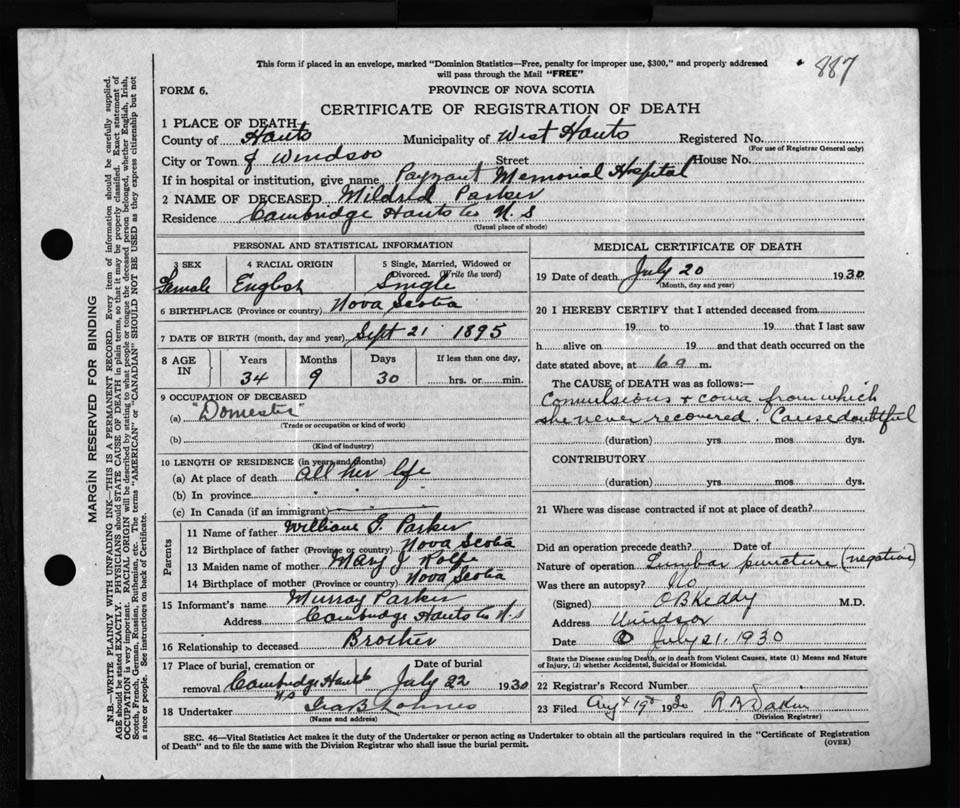 This form if placed in an envelope, marked "Dominion Statistics—Free, penalty for improper use, $300," and properly addressed
will pass through the Mail "FREE"
887
FORM 6.
PROVINCE OF NOVA SCOTIA
CERTIFICATE OF REGISTRATION OF DEATH
1 PLACE OF DEATH
County of Hants Municipality of West Hants Registered No.
(For use of Registrar General only)
City or Town of Windsor Street House No.
If in hospital or institution, give name Payzant Memorial Hospital
2 NAME OF DECEASED Mildred Parker
Residence Cambridge Hants Co N.S
(Usual place of abode)
PERSONAL AND STATISTICAL INFORMATION
3 SEX 4 RACIAL ORIGIN 5 Single, Married, Widowed or
Divorced. (Write the word)
Female English Single
6 BIRTHPLACE (Province or country) Nova Scotia
7 DATE OF BIRTH (month, day and year) Sept 21 1895
8 AGE IN Years Months Days If less than one day,
34 9 30 hrs. or min.
9 OCCUPATION OF DECEASED
(a) "Domestic"
(Trade or occupation or kind of work)
(b)
(Kind of industry)
10 LENGTH OF RESIDENCE (in years and months)
(a) At place of death all her life
(b) In province " " "
(c) In Canada (if an immigrant)
Parents
11 Name of father William F. Parker
12 Birthplace of father (Province or country) Nova Scotia
13 Maiden name of mother Mary J Rolfe
14 Birthplace of mother (Province or country) Nova Scotia
15 Informant's name Murray Parker
Address Cambridge Hants Co N.S
16 Relationship to deceased Brother
17 Place of burial, cremation or Date of burial
removal Cambridge Hants Co July 22 1930
N.S
18 Undertaker
(Name and address)
MEDICAL CERTIFICATE OF DEATH
19 Date of death July 20 1930
(Month, day and year)
20 I HEREBY CERTIFY that I attended deceased from
19 to 19 that I last saw
h alive on 19 and that death occurred on the
date stated above, at 6 a m.
The CAUSE of DEATH was as follows:—
Convulsions + coma from which
she never recovered. Cause doubtful
(duration) yrs. mos. dys.
CONTRIBUTORY
(duration) yrs. mos. dys.
21 Where was disease contracted if not at place of death?
Did an operation precede death? Date of
Nature of operation Lumbar puncture (negative)
Was there an autopsy? No
(Signed) O B Keddy M.D.
Address Windsor
Date July 21. 1930
State the Disease causing Death, or in death from Violent Causes, state (1) Means and Nature
of Injury, (2) whether Accidental, Suicidal or Homicidal.
22 Registrar's Record Number
23 Filed Aug 19th 1930
(Division Registrar)
SEC. 46—Vital Statistics Act makes it duty of the Undertaker or person acting as Undertaker to obtain all the particulars required in the "Certificate of Registration
of Death" and to file the same with the Division Registrar who shall issue the burial permit.
(OVER)
MARGIN RESERVED FOR BINDING
N.B.—WRITE PLAINLY WITH UNFADING INK—THIS IS A PERMANENT RECORD. Every item of information should be carefully supplied.
AGE should be stated EXACTLY. PHYSICIANS should STATE CAUSE OF DEATH in plain terms, so that it may be properly classified. Exact statement of
OCCUPATION is very important. RACIAL ORIGIN will be described by stating to what people or tongue the deceased person belonged, whether English, Irish,
Scotch, French, German, Russian, Ruthenian, etc. The terms "AMERICAN" or "CANADIAN" SHOULD NOT BE USED as they express citizenship but not
a race or people. See instructions on back of Certificate.